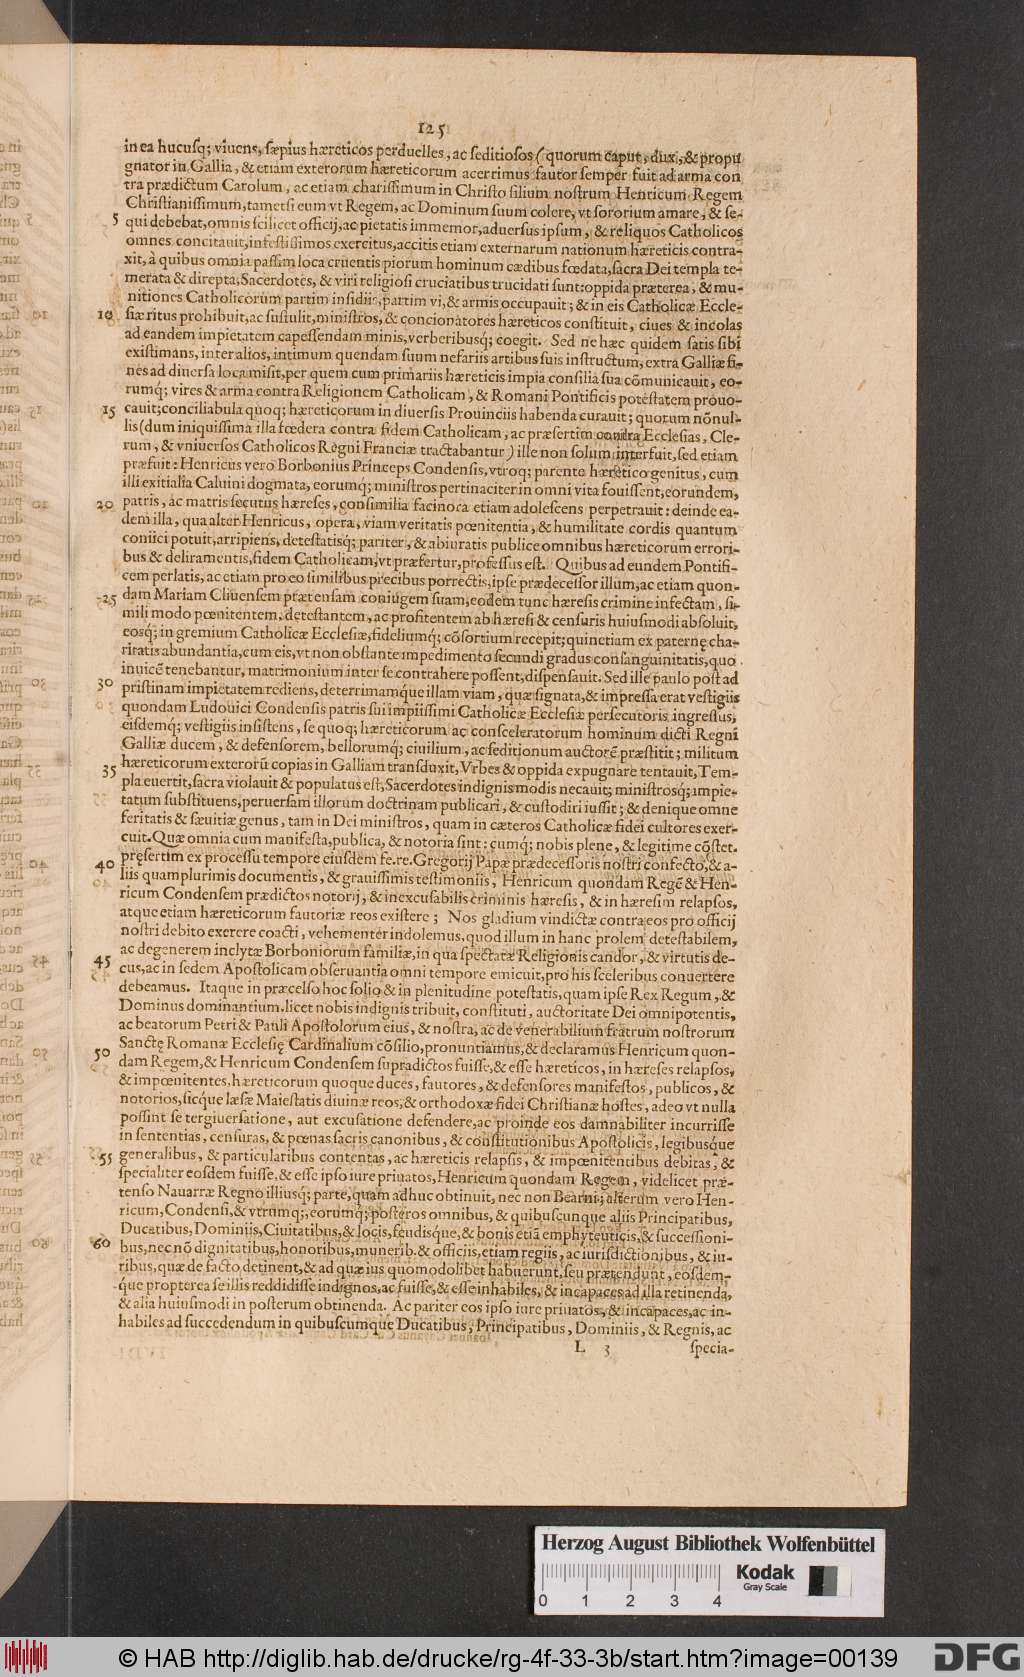 125
in ea hucusq; viuens, sæpius hæreticos perduelles, ac seditiosos (quorum caput, dux, & propu
gnator in Gallia, & etiam exterorum hæreticorum acerrimus fautor semper fuit ad arma con
tra prædictum Carolum, ac etiam charissimum in Christo filium nostrum Henricum Regem
Christianissimum, tametsi eum vt Regem, ac Dominum suum colere, vt sororium amare, & se-
5 qui debebat, omnis scilicet officij, ac pietatis immemor, aduersus ipsum, & reliquos Catholicos
omnes concitauit, infestissimos exercitus, accitis etiam externarum nationum hæreticis contra-
xit, à quibus omnia passim loca cruentis piorum hominum cædibus fœdata, sacra Dei templa te-
merata & direpta, Sacerdotes, & viri religiosi cruciatibus trucidati sunt: oppida præterea, & mu-
nitiones Catholicorum partim insidiis, partim vi, & armis occupauit; & in eis Catholicæ Eccle-
10 siæ ritus prohibuit, ac sustulit, ministros, & concionatores hæreticos constituit, ciues & incolas
ad eandem impietatem capessendam minis, verberibusq; coegit. Sed ne hæc quidem satis sibi
existimans, inter alios, intimum quendam suum nefariis artibus suis instructum, extra Galliæ fi-
nes ad diuersa loca misit, per quem cum primariis hæreticis impia consilia sua cõmunicauit, eo-
rumq; vires & arma contra Religionem Catholicam, & Romani Pontificis potestatem prouo-
15 cauit; conciliabula quoq; hæreticorum in diuersis Prouinciis habenda curauit; quorum nõnul-
lis (dum iniquissima illa fœdera contra fidem Catholicam, ac præsertim contra Ecclesias, Cle-
rum, & vniuersos Catholicos Regni Franciæ tractabantur) ille non solum interfuit, sed etiam
præfuit: Henricus vero Borbonius Princeps Condensis, vtroq; parente hæretico genitus, cum
illi exitialia Caluini dogmata, eorumq; ministros pertinaciter in omni vita fouissent, eorundem,
20 patris, ac matris secutus hæreses, consimilia facinora etiam adolescens perpetrauit: deinde ea-
dem illa, qua alter Henricus, opera, viam veritatis pœnitentia, & humilitate cordis quantum
coniici potuit, arripiens, detestatisq; pariter, & abiuratis publice omnibus hæreticorum errori-
bus & deliramentis, fidem Catholicam, vt præfertur, professus est. Quibus ad eundem Pontifi-
cem perlatis, ac etiam pro eo similibus precibus porrectis, ipse prædecessor illum, ac etiam quon-
25 dam Mariam Cliuensem prætensam coniugem suam, eodem tunc hæresis crimine infectam, si-
mili modo pœnitentem, detestantem, ac profitentem ab hæresi & censuris huiusmodi absoluit,
eosq; in gremium Catholicæ Ecclesiæ, fideliumq; cõsortium recepit; quinetiam ex paternę cha-
ritatis abundantia, cum eis, vt non obstante impedimento secundi gradus consanguinitatis, quo
inuicẽ tenebantur, matrimonium inter se contrahere possent, dispensauit. Sed ille paulo post ad
30 pristinam impietatem rediens, deterrimamque illam viam, quæ signata, & impressa erat vestigiis
quondam Ludouici Condensis patris sui impiissimi Catholicæ Ecclesiæ persecutoris ingressus,
eisdemq; vestigiis insistens, se quoq; hæreticorum ac consceleratorum hominum dicti Regni
Galliæ ducem, & defensorem, bellorumq; ciuilium, ac seditionum auctorẽ præstitit; militum
hæreticorum exterorũ copias in Galliam transduxit, Vrbes & oppida expugnare tentauit, Tem-
35 pla euertit, sacra violauit & populatus est, Sacerdotes indignis modis necauit; ministrosq; impie-
tatum substituens, peruersam illorum doctrinam publicari, & custodiri iussit; & denique omne
feritatis & sæuitiæ genus, tam in Dei ministros, quam in cæteros Catholicæ fidei cultores exer-
cuit. Quæ omnia cum manifesta, publica, & notoria sint: cumq; nobis plene, & legitime cõstet.
pręsertim ex processu tempore eiusdem fe. re. Gregorij Papæ prædecessoris nostri confecto, & a-
40 liis quamplurimis documentis, & grauissimis testimoniis, Henricum quondam Regẽ & Hen-
ricum Condensem prædictos notorij, & inexcusabilis criminis hæresis, & in hæresim relapsos,
atque etiam hæreticorum fautoriæ reos existere; Nos gladium vindictæ contra eos pro officij
nostri debito exerere coacti, vehementer indolemus, quod illum in hanc prolem detestabilem,
ac degenerem inclytæ Borboniorum familiæ, in qua spectatæ Religionis candor, & virtutis de-
45 cus, ac in sedem Apostolicam obseruantia omni tempore emicuit, pro his sceleribus conuertere
debeamus. Itaque in præcelso hoc solio & in plenitudine potestatis, quam ipse Rex Regum, &
Dominus dominantium, licet nobis indignis tribuit, constituti, auctoritate Dei omnipotentis,
ac beatorum Petri & Pauli Apostolorum eius, & nostra, ac de venerabilium fratrum nostrorum
Sanctę Romanæ Ecclesię Cardinalium cõsilio, pronuntiamus, & declaramus Henricum quon-
50 dam Regem, & Henricum Condensem supradictos fuisse, & esse hæreticos, in hæreses relapsos,
& impœnitentes, hæreticorum quoque duces, fautores, & defensores manifestos, publicos, &
notorios, sicque læsæ Maiestatis diuinæ reos, & orthodoxæ fidei Christianæ hostes, adeo vt nulla
possint se tergiuersatione, aut excusatione defendere, ac proinde eos damnabiliter incurrisse
in sententias, censuras, & pœnas sacris canonibus, & constitutionibus Apostolicis, legibusque
55 generalibus, & particularibus contentas, ac hæreticis relapsis, & impœnitentibus debitas, &
specialiter eosdem fuisse, & esse ipso iure priuatos, Henricum quondam Regem, videlicet præ-
tenso Nauarræ Regno illiusq; parte, quam adhuc obtinuit, nec non Bearni; alterum vero Hen-
ricum, Condensi, & vtrumq;, eorumq; posteros omnibus, & quibuscunque aliis Principatibus,
Ducatibus, Dominiis, Ciuitatibus, & locis, feudisque, & bonis etiã emphyteuticis, & successioni-
60 bus, nec nõ dignitatibus, honoribus, munerib. & officiis, etiam regiis, ac iurisdictionibus, & iu-
ribus, quæ de facto detinent, & ad quæ ius quomodolibet habuerunt, seu prætendunt, eosdem-
que propterea se illis reddidisse indignos, ac fuisse, & esse inhabiles, & incapaces ad illa retinenda,
& alia huiusmodi in posterum obtinenda. Ac pariter eos ipso iure priuatos, & incapaces, ac in-
habiles ad succedendum in quibuscumque Ducatibus, Principatibus, Dominiis, & Regnis, ac
L 3 specia-
Herzog August Bibliothek Wolfenbüttel
Kodak
Gray Scale
0 1 2 3 4
© HAB http://diglib.hab.de/drucke/rg-4f-33-3b/start.htm?image=00139
DFG